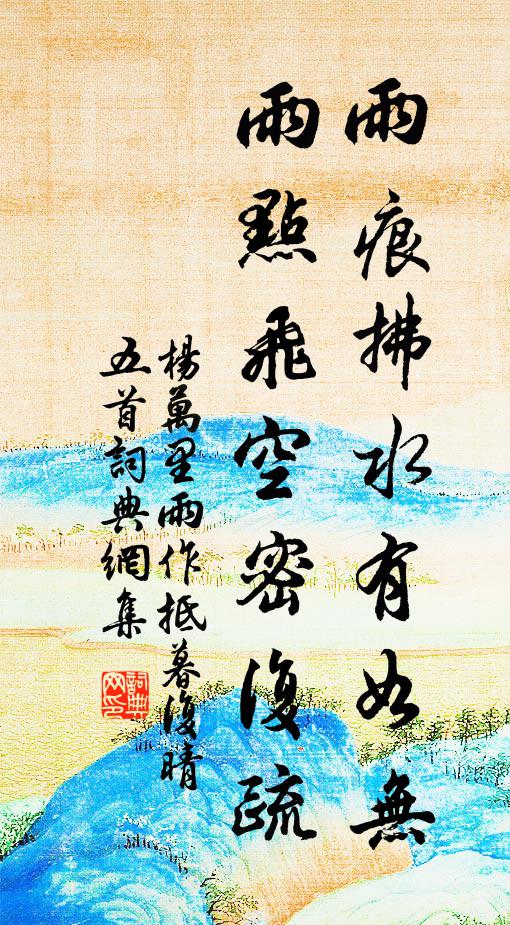 雨痕拂水有如無
雨點飛空密復疏
楊萬里雨作抵暮復晴
五首詞典網集
詞典網印